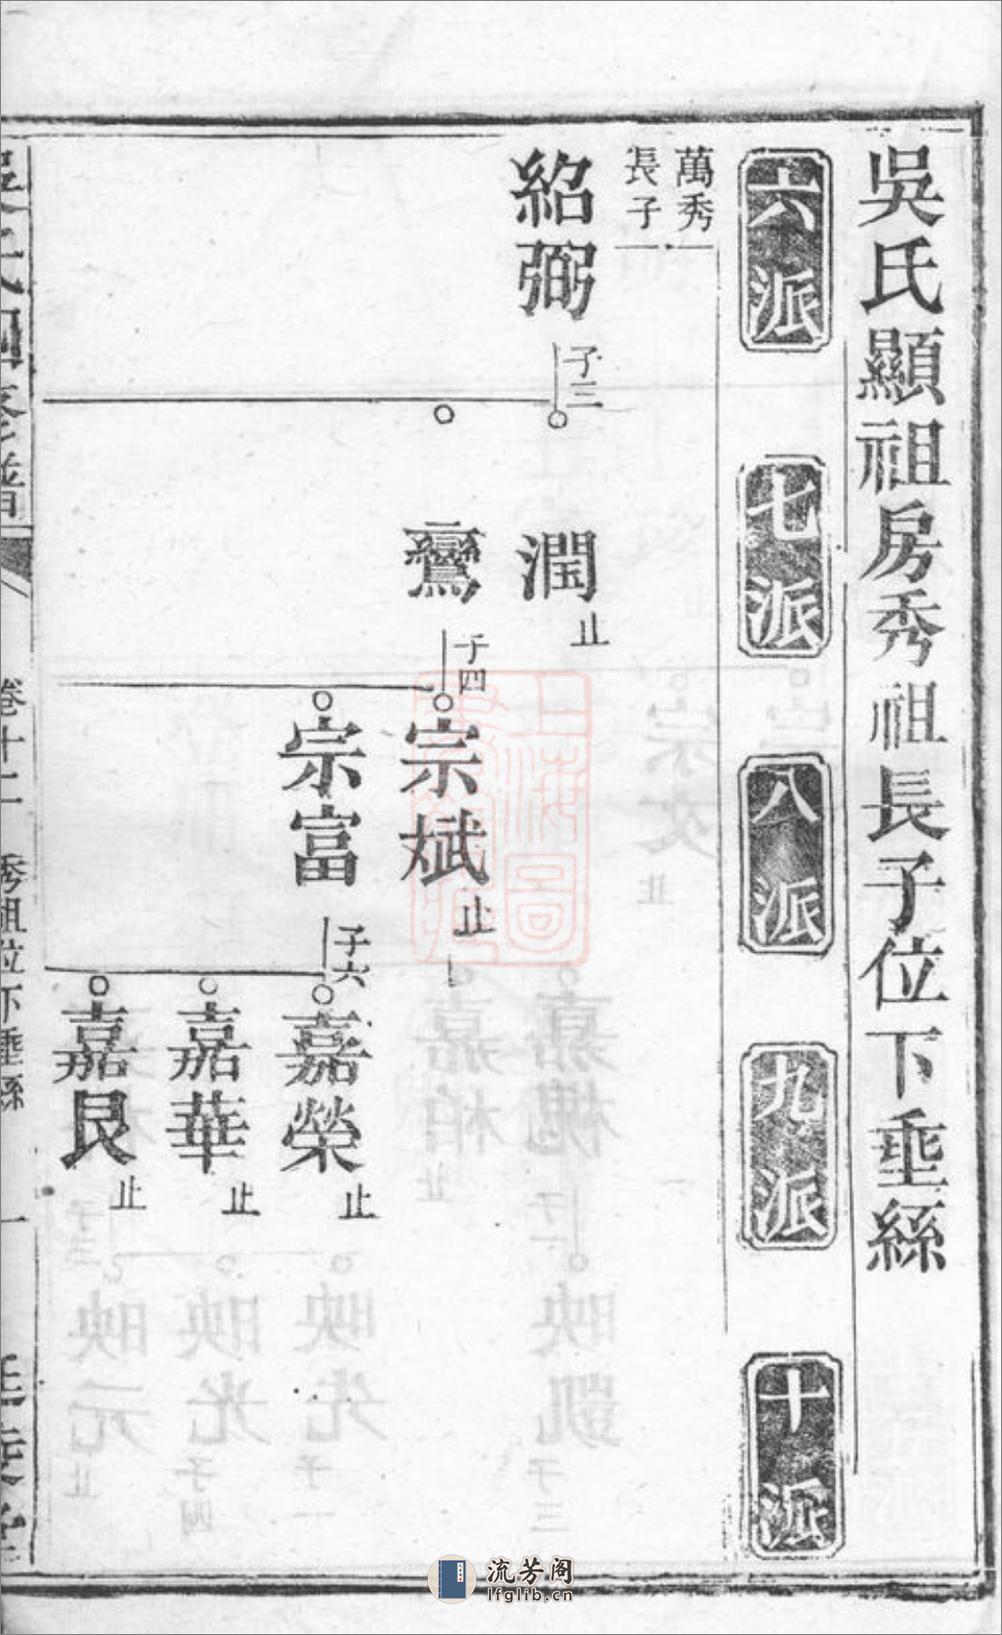 吳氏顯祖房秀祖長子位下垂絲
六派
七派
八派
九派
十派
萬秀
長子
紹弼
子三
潤
止
鸞
子四
宗斌
止
宗富
子六
嘉榮
止
嘉華
止
嘉艮
止
卷十二
秀祖位下垂絲
一
上海圖
流芳阁
lfglib.cn